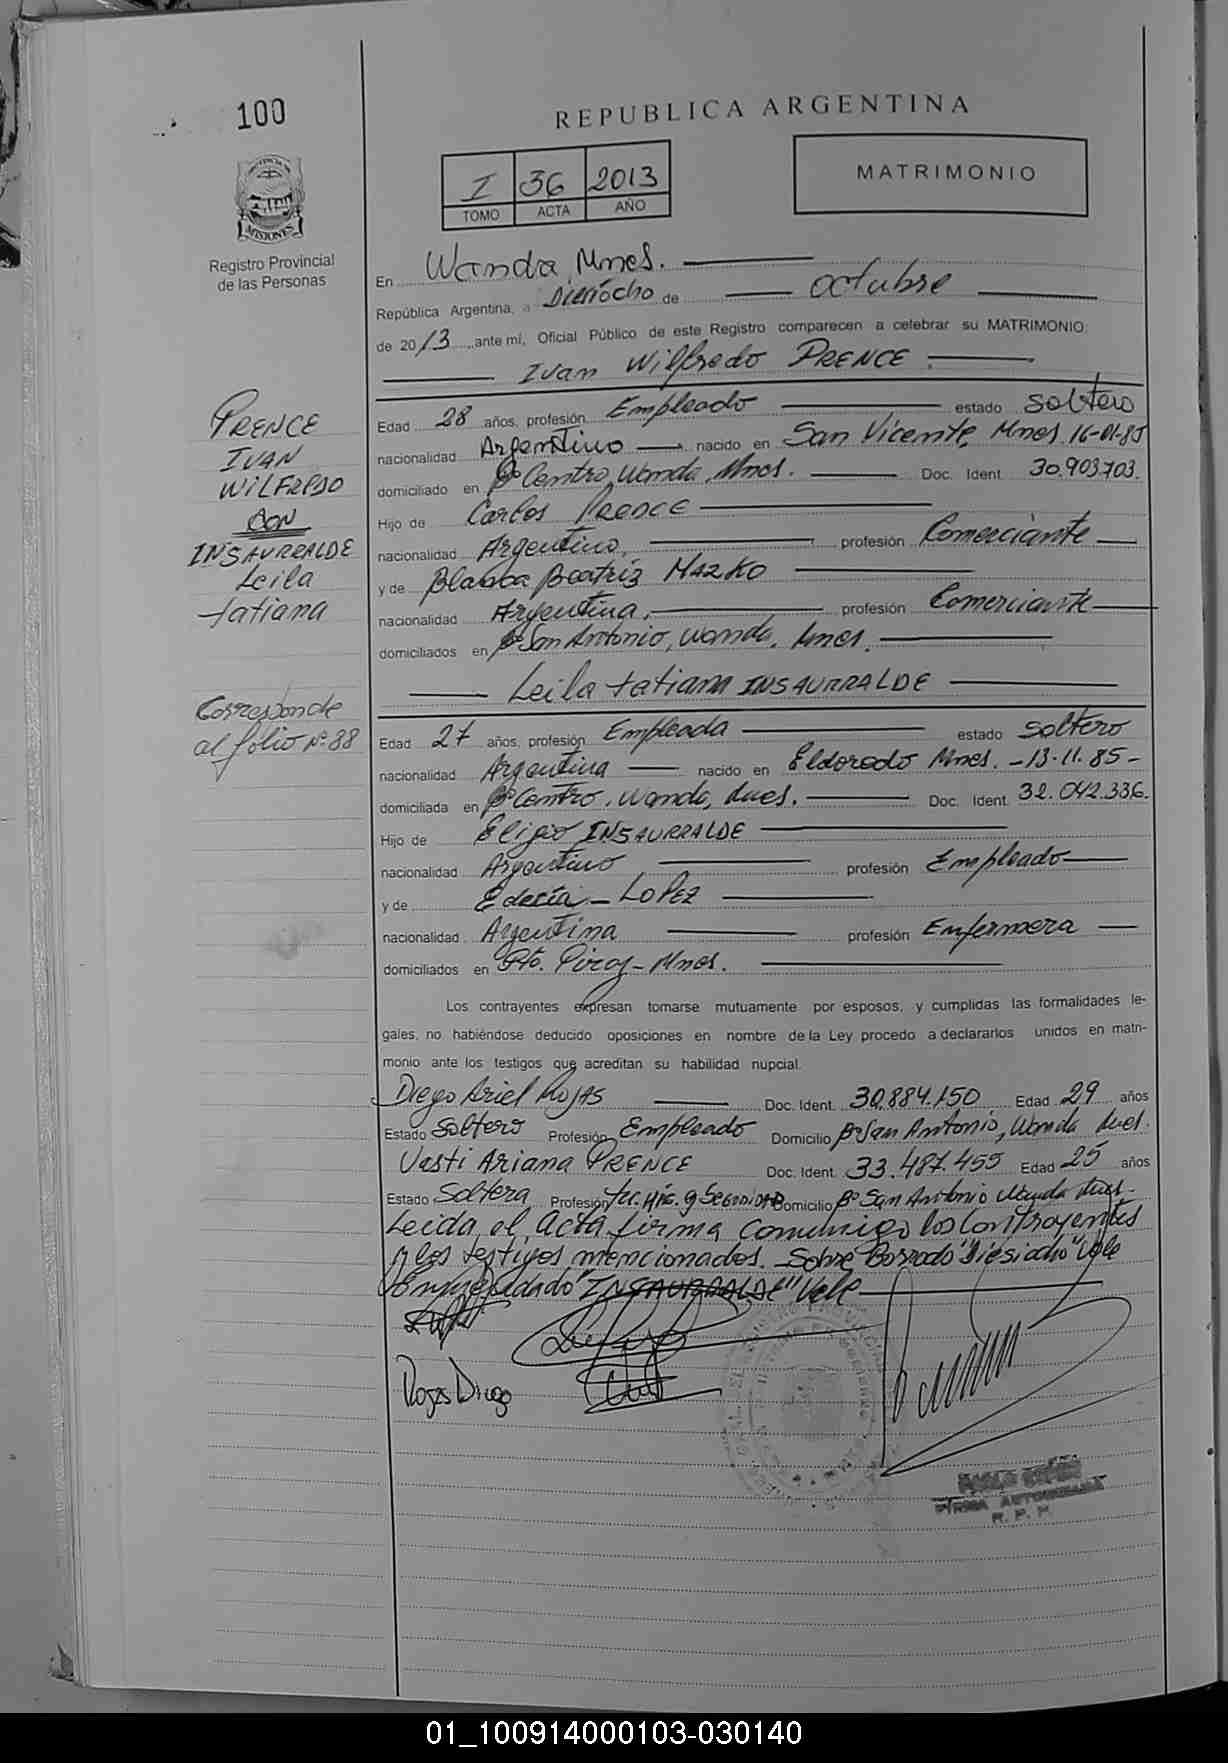 100
REPUBLICA ARGENTINA
I 36 2013
TOMO ACTA AÑO
MATRIMONIO
Registro Provincial
de las Personas
En Wanda Mnes.
República Argentina, a Dieciocho de octubre
de 2013 ante mí, Oficial Público de este Registro comparecen a celebrar su MATRIMONIO:
Ivan Wilfredo PRENCE
PRENCE
IVAN
WILFREDO
CON
INSAURRALDE
Leila
tatiana
Corresponde
al folio Nº 88
Edad 28 años, profesión Empleado estado Soltero
nacionalidad Argentino nacido en San Vicente, Mnes. 16-01-85
domiciliado en Bº Centro, Wanda, Mnes. Doc. Ident. 30.903.703.
Hijo de Carlos PRENCE
nacionalidad Argentino, profesión Comerciante
y de Blanca Beatriz MAZKO
nacionalidad Argentina, profesión Comerciante
domiciliados en Bº San Antonio, Wanda, Mnes.
Leila tatiana INSAURRALDE
Edad 27 años, profesión Empleada estado Soltero
nacionalidad Argentina nacido en Eldorado Mnes. -13-11.85-
domiciliada en Bº Centro, Wanda, Mnes. Doc. Ident. 32.042.336.
Hijo de Eligio INSAURRALDE
nacionalidad Argentino profesión Empleado
y de Edecia - LOPEZ
nacionalidad Argentina profesión Enfermera
domiciliados en Pto. Piray - Mnes.
Los contrayentes expresan tomarse mutuamente por esposos, y cumplidas las formalidades le-
gales, no habiéndose deducido oposiciones en nombre de la Ley procedo a declararlos unidos en matri-
monio ante los testigos que acreditan su habilidad nupcial.
Diego Ariel ROJAS Doc. Ident. 30.884.150 Edad 29 años
Estado Soltero Profesión Empleado Domicilio Bº San Antonio, Wanda Mnes.
Vasti Ariana PRENCE Doc. Ident. 33.487.455 Edad 25 años
Estado Soltera Profesión Tec. Hig. y Seguridad Domicilio Bº San Antonio Wanda Mnes.
Leida el Acta firma conmigo los Contrayentes
y los testigos mencionados. Sobre Borrado "Diesiocho" Vale
Enmendado "INSAURRALDE" Vale
Rojas Diego
FIRMA AUTORIZADA
R. P. P.
01_100914000103-030140